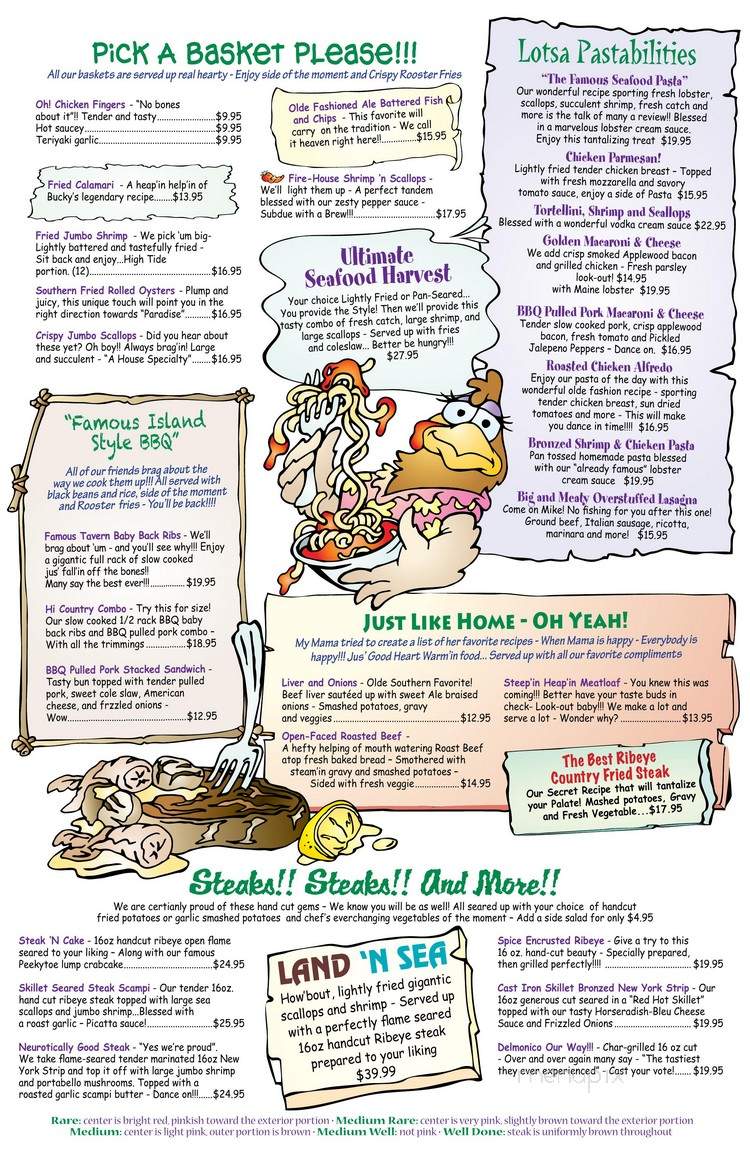 Pick A Basket Please!!!
All our baskets are served up real hearty - Enjoy side of the moment and Crispy Rooster Fries
Oh! Chicken Fingers - “No bones
about it”!! Tender and tasty......................$9.95
Hot saucey..............................................$9.95
Teriyaki garlic.........................................$9.95
Fried Calamari - A heap'in help'in of
Bucky's legendary recipe.......$13.95
Fried Jumbo Shrimp - We pick 'um big-
Lightly battered and tastefully fried -
Sit back and enjoy...High Tide
portion. (12)...........................................$16.95
Southern Fried Rolled Oysters - Plump and
juicy, this unique touch will point you in the
right direction towards “Paradise”.........$16.95
Crispy Jumbo Scallops - Did you hear about
these yet? Oh boy!! Always brag'in! Large
and succulent - “A House Specialty”.......$16.95
Olde Fashioned Ale Battered Fish
and Chips - This favorite will
carry on the tradition - We call
it heaven right here!!............$15.95
Fire-House Shrimp 'n Scallops -
We'll light them up - A perfect tandem
blessed with our zesty pepper sauce -
Subdue with a Brew!!!.............................$17.95
Ultimate
Seafood Harvest
Your choice Lightly Fried or Pan-Seared...
You provide the Style! Then we'll provide this
tasty combo of fresh catch, large shrimp, and
large scallops - Served up with fries
and coleslaw... Better be hungry!!!
$27.95
Lotsa Pastabilities
“The Famous Seafood Pasta”
Our wonderful recipe sporting fresh lobster,
scallops, succulent shrimp, fresh catch and
more is the talk of many a review!! Blessed
in a marvelous lobster cream sauce.
Enjoy this tantalizing treat $19.95
Chicken Parmesan!
Lightly fried tender chicken breast – Topped
with fresh mozzarella and savory
tomato sauce, enjoy a side of Pasta $15.95
Tortellini, Shrimp and Scallops
Blessed with a wonderful vodka cream sauce $22.95
Golden Macaroni & Cheese
We add crisp smoked Applewood bacon
and grilled chicken - Fresh parsley
look-out! $14.95
with Maine lobster $19.95
BBQ Pulled Pork Macaroni & Cheese
Tender slow cooked pork, crisp applewood
bacon, fresh tomato and Pickled
Jalepeno Peppers – Dance on. $16.95
Roasted Chicken Alfredo
Enjoy our pasta of the day with this
wonderful olde fashion recipe - sporting
tender chicken breast, sun dried
tomatoes and more - This will make
you dance in time!!!! $16.95
Bronzed Shrimp & Chicken Pasta
Pan tossed homemade pasta blessed
with our “already famous” lobster
cream sauce $19.95
Big and Meaty Overstuffed Lasagna
Come on Mike! No fishing for you after this one!
Ground beef, Italian sausage, ricotta,
marinara and more! $15.95
“Famous Island
Style BBQ”
All of our friends brag about the
way we cook them up!!! All served with
black beans and rice, side of the moment
and Rooster fries - You'll be back!!!!
Famous Tavern Baby Back Ribs - We'll
brag about 'um - and you'll see why!!! Enjoy
a gigantic full rack of slow cooked
jus' fall'in off the bones!!
Many say the best ever!!!................$19.95
Hi Country Combo - Try this for size!
Our slow cooked 1/2 rack BBQ baby
back ribs and BBQ pulled pork combo –
With all the trimmings ......................$18.95
BBQ Pulled Pork Stacked Sandwich -
Tasty bun topped with tender pulled
pork, sweet cole slaw, American
cheese, and frzzled onions -
Wow..........................................$12.95
Just Like Home - Oh Yeah!
My Mama tried to create a list of her favorite recipes - When Mama is happy - Everybody is
happy!!! Jus' Good Heart Warm'in food... Served up with all our favorite compliments
Liver and Onions - Olde Southern Favorite!
Beef liver sautéed up with sweet Ale braised
onions - Smashed potatoes, gravy
and veggies.............................................$12.95
Open-Faced Roasted Beef -
A hefty helping of mouth watering Roast Beef
atop fresh baked bread – Smothered with
steam'in gravy and smashed potatoes –
Sided with fresh veggie..................$14.95
Steep'in Heap'in Meatloaf - You knew this was
coming!!! Better have your taste buds in
check- Look-out baby!!! We make a lot and
serve a lot - Wonder why? ......................$13.95
The Best Ribeye
Country Fried Steak
Our Secret Recipe that will tantalize
your Palate! Mashed potatoes, Gravy
and Fresh Vegetable...$17.95
Steaks!! Steaks!! And More!!
We are certianly proud of these hand cut gems – We know you will be as well! All seared up with your choice of handcut
fried potatoes or garlic smashed potatoes and chef's everchanging vegetables of the moment – Add a side salad for only $4.95
Steak 'N Cake - 16oz handcut ribeye open flame
seared to your liking – Along with our famous
Peekytoe lump crabcake...............................$24.95
Skillet Seared Steak Scampi - Our tender 16oz.
hand cut ribeye steak topped with large sea
scallops and jumbo shrimp...Blessed with
a roast garlic – Picatta sauce!.......................$25.95
Neurotically Good Steak - “Yes we're proud”.
We take flame-seared tender marinated 16oz New
York Strip and top it off with large jumbo shrimp
and portabello mushrooms. Topped with a
roasted garlic scampi butter - Dance on!!!.....$24.95
LAND 'N SEA
How'bout, lightly fried gigantic
scallops and shrimp - Served up
with a perfectly flame seared
16oz handcut Ribeye steak
prepared to your liking
$39.99
Spice Encrusted Ribeye - Give a try to this
16 oz. hand-cut beauty - Specially prepared,
then grilled perfectly!!!! ...............................$19.95
Cast Iron Skillet Bronzed New York Strip - Our
16oz generous cut seared in a “Red Hot Skillet”
topped with our tasty Horseradish-Bleu Cheese
Sauce and Frizzled Onions............................$19.95
Delmonico Our Way!!! - Char-grilled 16 oz cut
- Over and over again many say - “The tastiest
they ever experienced” - Cast your vote!.......$19.95
menupix
Rare: center is bright red, pinkish toward the exterior portion · Medium Rare: center is very pink, slightly brown toward the exterior portion
Medium: center is light pink, outer portion is brown · Medium Well: not pink · Well Done: steak is uniformly brown throughout